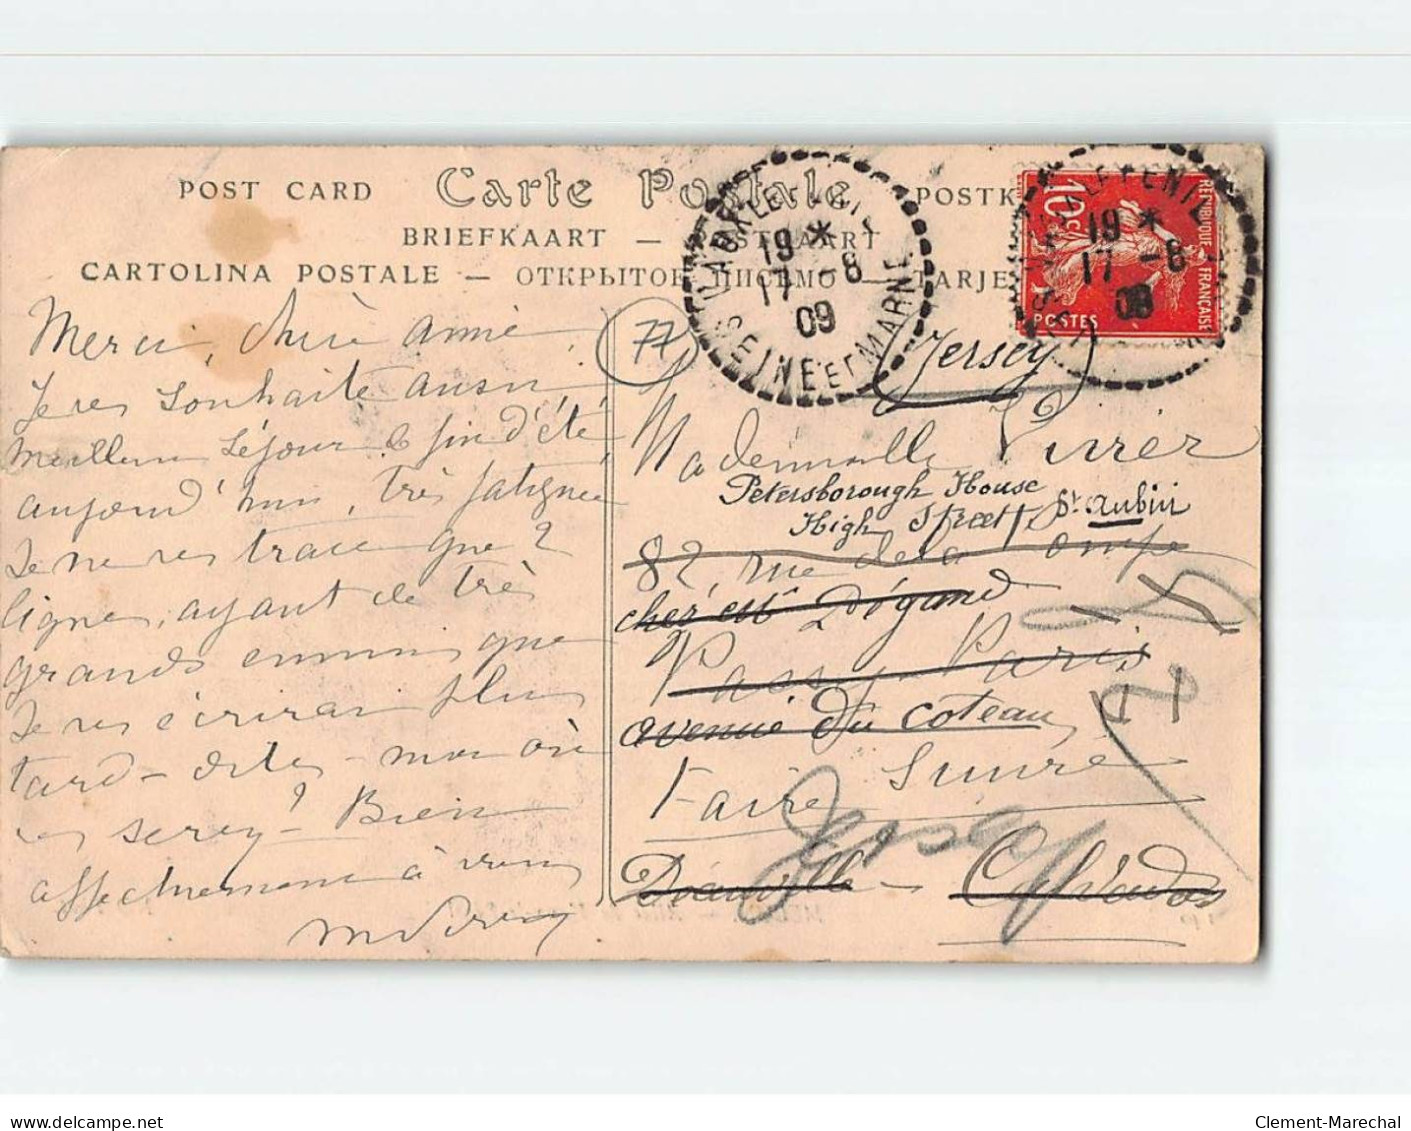 POST CARD Carte Postale POSTK
BRIEFKAART —
CARTOLINA POSTALE — ОТКРЫТОЕ ПИСЬМО — TARJE
VAUX LE PENIL
19 *
17 -8
09
SEINE ET MARNE
10c
REPUBLIQUE FRANCAISE
POSTES
19 *
17 -8
09
77
Jersey
Merci, chère amie,
Je vs souhaite aussi
meilleur séjour & fin d'été
aujourd'hui, très fatiguée
Je ne vs trace que 2
lignes, ayant de très
grands ennuis que
Je vs écrirai plus
tard — dites-moi où
vs serez? Bien
affectueusement à vous
Mademoiselle
Petersborough House
High Street, St Aubin
82, rue de la Pompe
Dégand
Passy Paris
avenue du coteau
Faire Suivre
Deauville — Calvados
Jersey
delcampe.net
Clement-Marechal